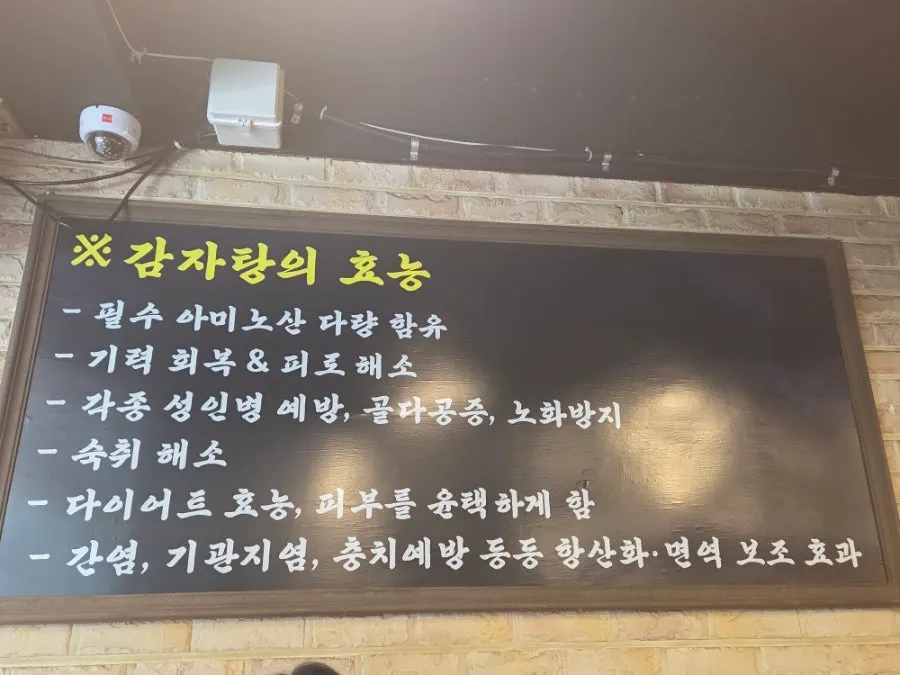 ※ 감자탕의 효능
- 필수 아미노산 다량 함유
- 기력 회복 & 피로해소
- 각종 성인병 예방, 골다공증, 노화방지
- 숙취 해소
- 다이어트 효능, 피부를 윤택하게 함
- 간염, 기관지염, 충치예방 등등 항산화·면역 보조 효과